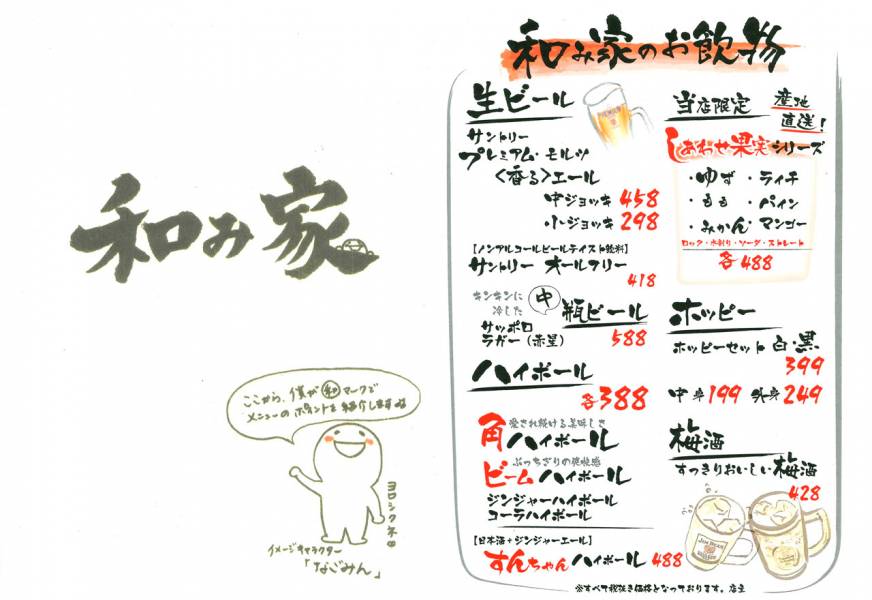 和み家
ここから、僕が㊗マークで
メニューのポイントを紹介しますね
ヨロシクネ
イメージキャラクター
「なごみん」
和み家のお飲物
生ビール
サントリー
プレミアム・モルツ
〈香る〉エール
中ジョッキ 458
小ジョッキ 298
【ノンアルコールビールテイスト飲料】
サントリー オールフリー
418
キンキンに
冷した
中 瓶ビール
サッポロ
ラガー（赤星）
588
ハイボール
各388
愛され続ける美味しさ
角ハイボール
ぶっちぎりの爽快感
ビームハイボール
ジンジャーハイボール
コーラハイボール
【日本酒+ジンジャーエール】
すんちゃんハイボール 488
当店限定
産地
直送！
しあわせ果実シリーズ
・ゆず ・ライチ
・もも ・パイン
・みかん ・マンゴー
ロック・水割り・ソーダ・ストレート
各488
ホッピー
ホッピーセット 白・黒
399
中身199 外身249
梅酒
すっきりおいしい梅酒
428
JIM BEAM
※すべて税抜き価格となっております。店主